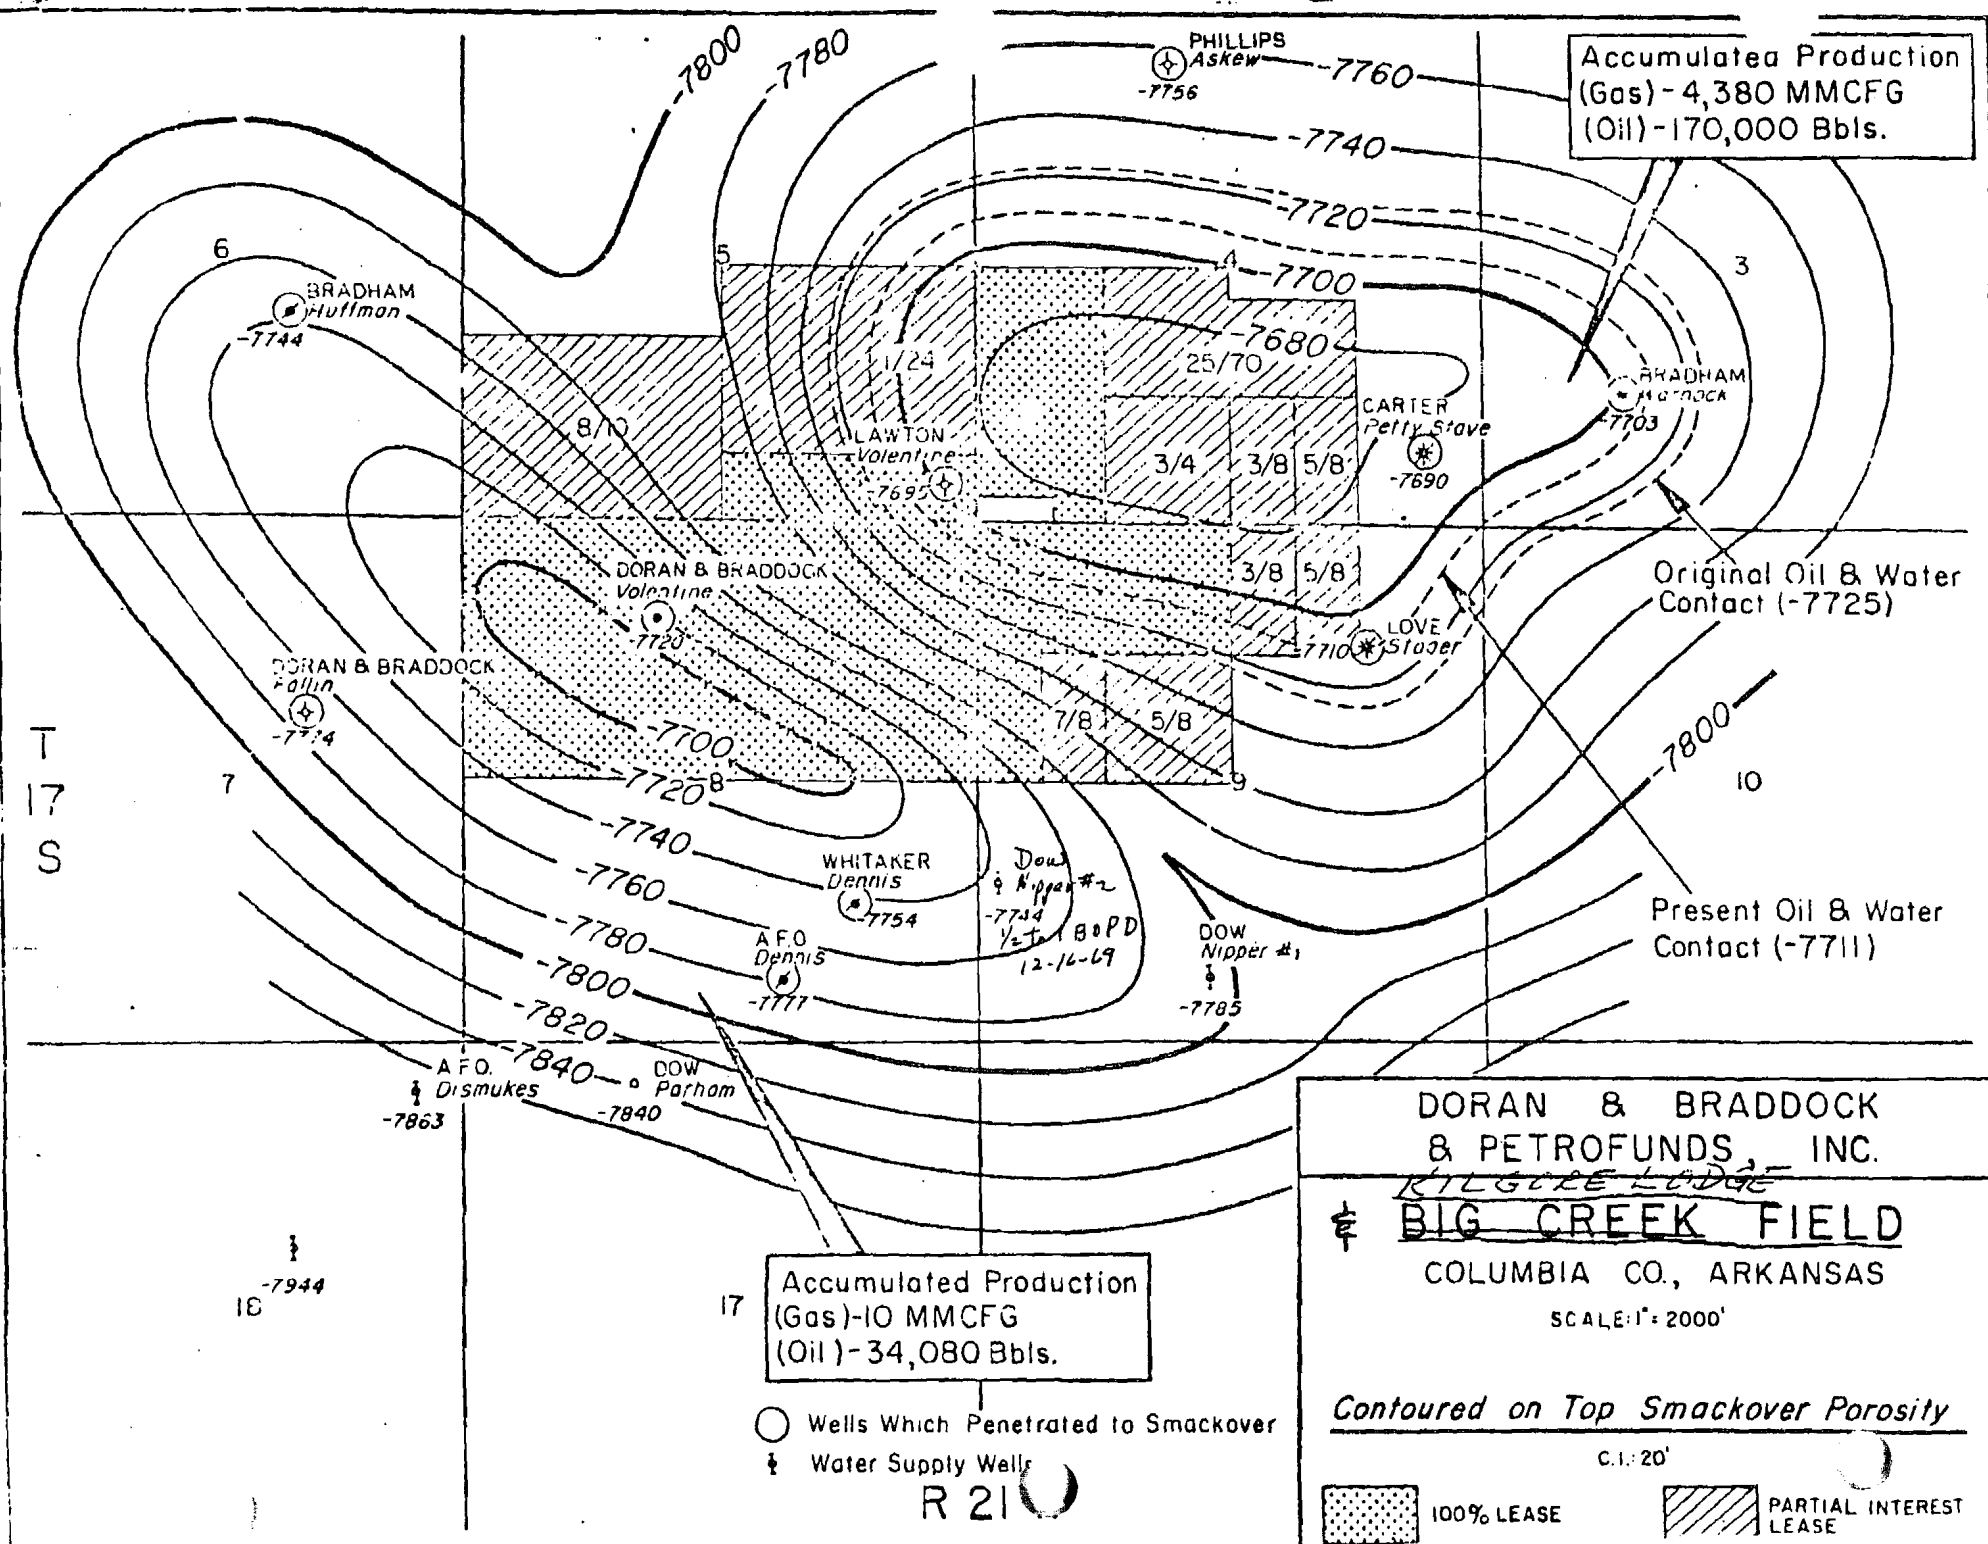 -7800
-7780
PHILLIPS
Askew
-7756
-7760
-7740
-7720
-7700
-7680
Accumulated Production
(Gas)-4,380 MMCFG
(Oil)-170,000 Bbls.
6
5
4
3
BRADHAM
Huffman
-7744
1/24
25/70
8/10
LAWTON
Volentine
3/4
3/8
5/8
CARTER
Petty Stave
-7690
BRADHAM
-7703
DORAN & BRADDOCK
Volentine
-7720
3/8
5/8
Original Oil & Water
Contact (-7725)
LOVE
-7710
DORAN & BRADDOCK
Fallin
7/8
5/8
-7800
T
17
S
7
8
9
10
-7700
-7720
-7740
-7760
-7780
-7800
-7820
-7840
WHITAKER
Dennis
-7754
Dow
Nipper #2
-7744
1/2 To 1 BOPD
12-16-69
A.F.O.
Dennis
-7777
DOW
Nipper #1
-7785
Present Oil & Water
Contact (-7711)
A.F.O.
Dismukes
-7863
DOW
Parham
-7840
-7944
18
17
Accumulated Production
(Gas)-10 MMCFG
(Oil)-34,080 Bbls.
Wells Which Penetrated to Smackover
Water Supply Wells
R 21
DORAN & BRADDOCK
& PETROFUNDS, INC.
KILGORE LODGE
& BIG CREEK FIELD
COLUMBIA CO., ARKANSAS
SCALE: 1" = 2000'
Contoured on Top Smackover Porosity
C.I.: 20'
100% LEASE
PARTIAL INTEREST
LEASE